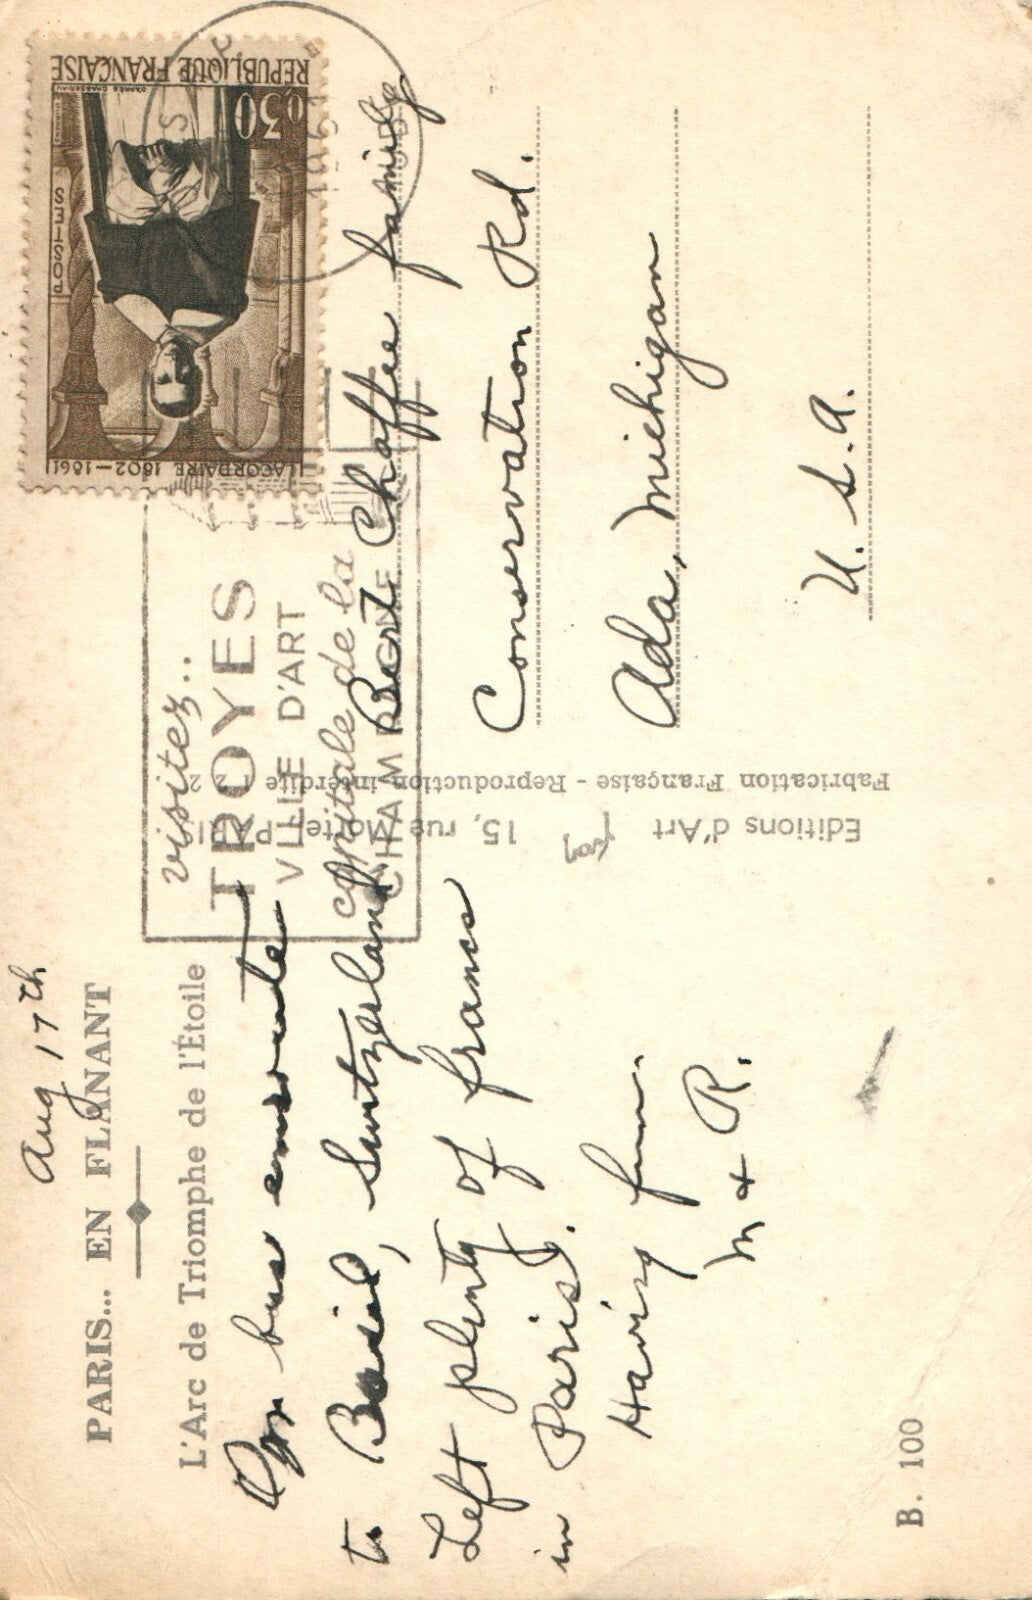 Aug 17th
PARIS... EN FLANANT
L'Arc de Triomphe de l'Étoile
On bus enroute
to Basil, Switzerland.
Left plenty of francs
in Paris.
Having fun.
M + R.
B. 100
Editions d'Art
15, rue Martel, Paris
Fabrication Française - Reproduction interdite
visitez..
TROYES
VILLE D'ART
capitale de la
CHAMPAGNE
REPUBLIQUE FRANÇAISE
0,30
POSTES
LACORDAIRE 1802-1861
1961
Bert Chaffee family
Conservation Rd.
Ada, Michigan
U.S.A.